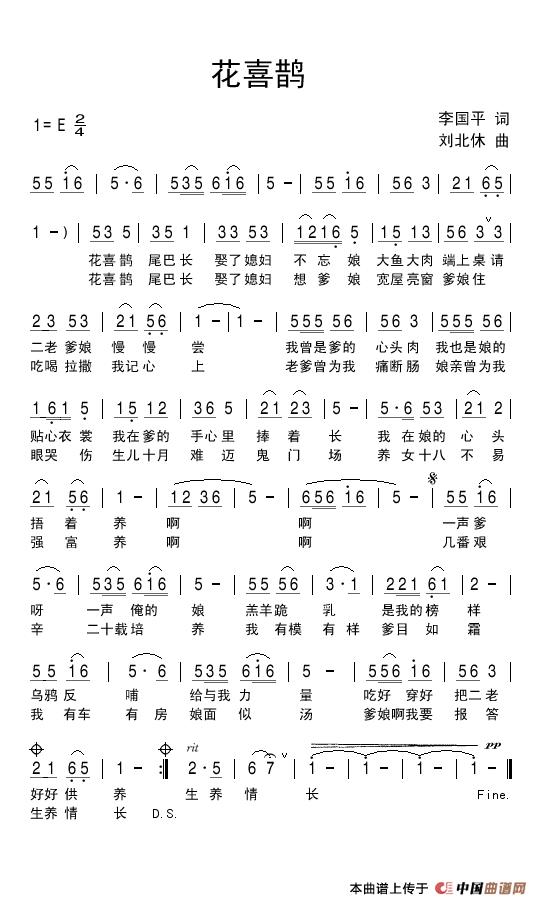 花喜鹊
1= E 2/4
李国平 词
刘北休 曲
5 5 1 6 | 5 · 6 | 5 3 5 6 1 6 | 5 - | 5 5 1 6 | 5 6 3 | 2 1 6 5 |
1 - ) | 5 3 5 | 3 5 1 | 3 3 5 3 | 1 2 1 6 5 | 1 5 1 3 | 5 6 3 3 |
花喜 鹊 尾巴 长 娶了 媳妇 不 忘 娘 大鱼 大肉 端上 桌 请
花喜 鹊 尾巴 长 娶了 媳妇 想 爹 娘 宽屋 亮窗 爹娘 住
2 3 5 3 | 2 1 5 6 | 1 - | 1 - | 5 5 5 5 6 | 5 6 3 | 5 5 5 5 6 |
二老 爹娘 慢 慢 尝 我曾是 爹的 心头 肉 我也是 娘的
吃喝 拉撒 我记 心 上 老爹曾 为我 痛断 肠 娘亲曾 为我
1 6 1 5 | 1 5 1 2 | 3 6 5 | 2 1 2 3 | 5 - | 5 · 6 5 3 | 2 1 2 |
贴心衣 裳 我在 爹的 手心 里 捧 着 长 我 在 娘的 心 头
眼哭 伤 生儿 十月 难 迈 鬼 门 场 养 女 十八 不 易
2 1 5 6 | 1 - | 1 2 3 6 | 5 - | 6 5 6 1 6 | 5 - | 5 5 1 6 |
捂 着 养 啊 啊 一声 爹
强 富 养 啊 啊 几番 艰
5 · 6 | 5 3 5 6 1 6 | 5 - | 5 5 5 6 | 3 · 1 | 2 2 1 6 1 | 2 - |
呀 一声 俺的 娘 羔羊 跪 乳 是我的 榜 样
辛 二十载 培 养 我 有模 有 样 爹目 如 霜
5 5 1 6 | 5 · 6 | 5 3 5 6 1 6 | 5 - | 5 5 6 1 6 | 5 6 3 |
乌鸦 反 哺 给与我 力 量 吃好 穿好 把二 老
我 有车 有 房 娘面 似 汤 爹娘啊 我要 报 答
rit pp
2 1 6 5 | 1 - :‖ 2 · 5 | 6 7 | 1 - | 1 - | 1 - | 1 - ‖
好好 供 养 生 养 情 长 Fine.
生养 情 长 D.S.
本曲谱上传于 中国曲谱网